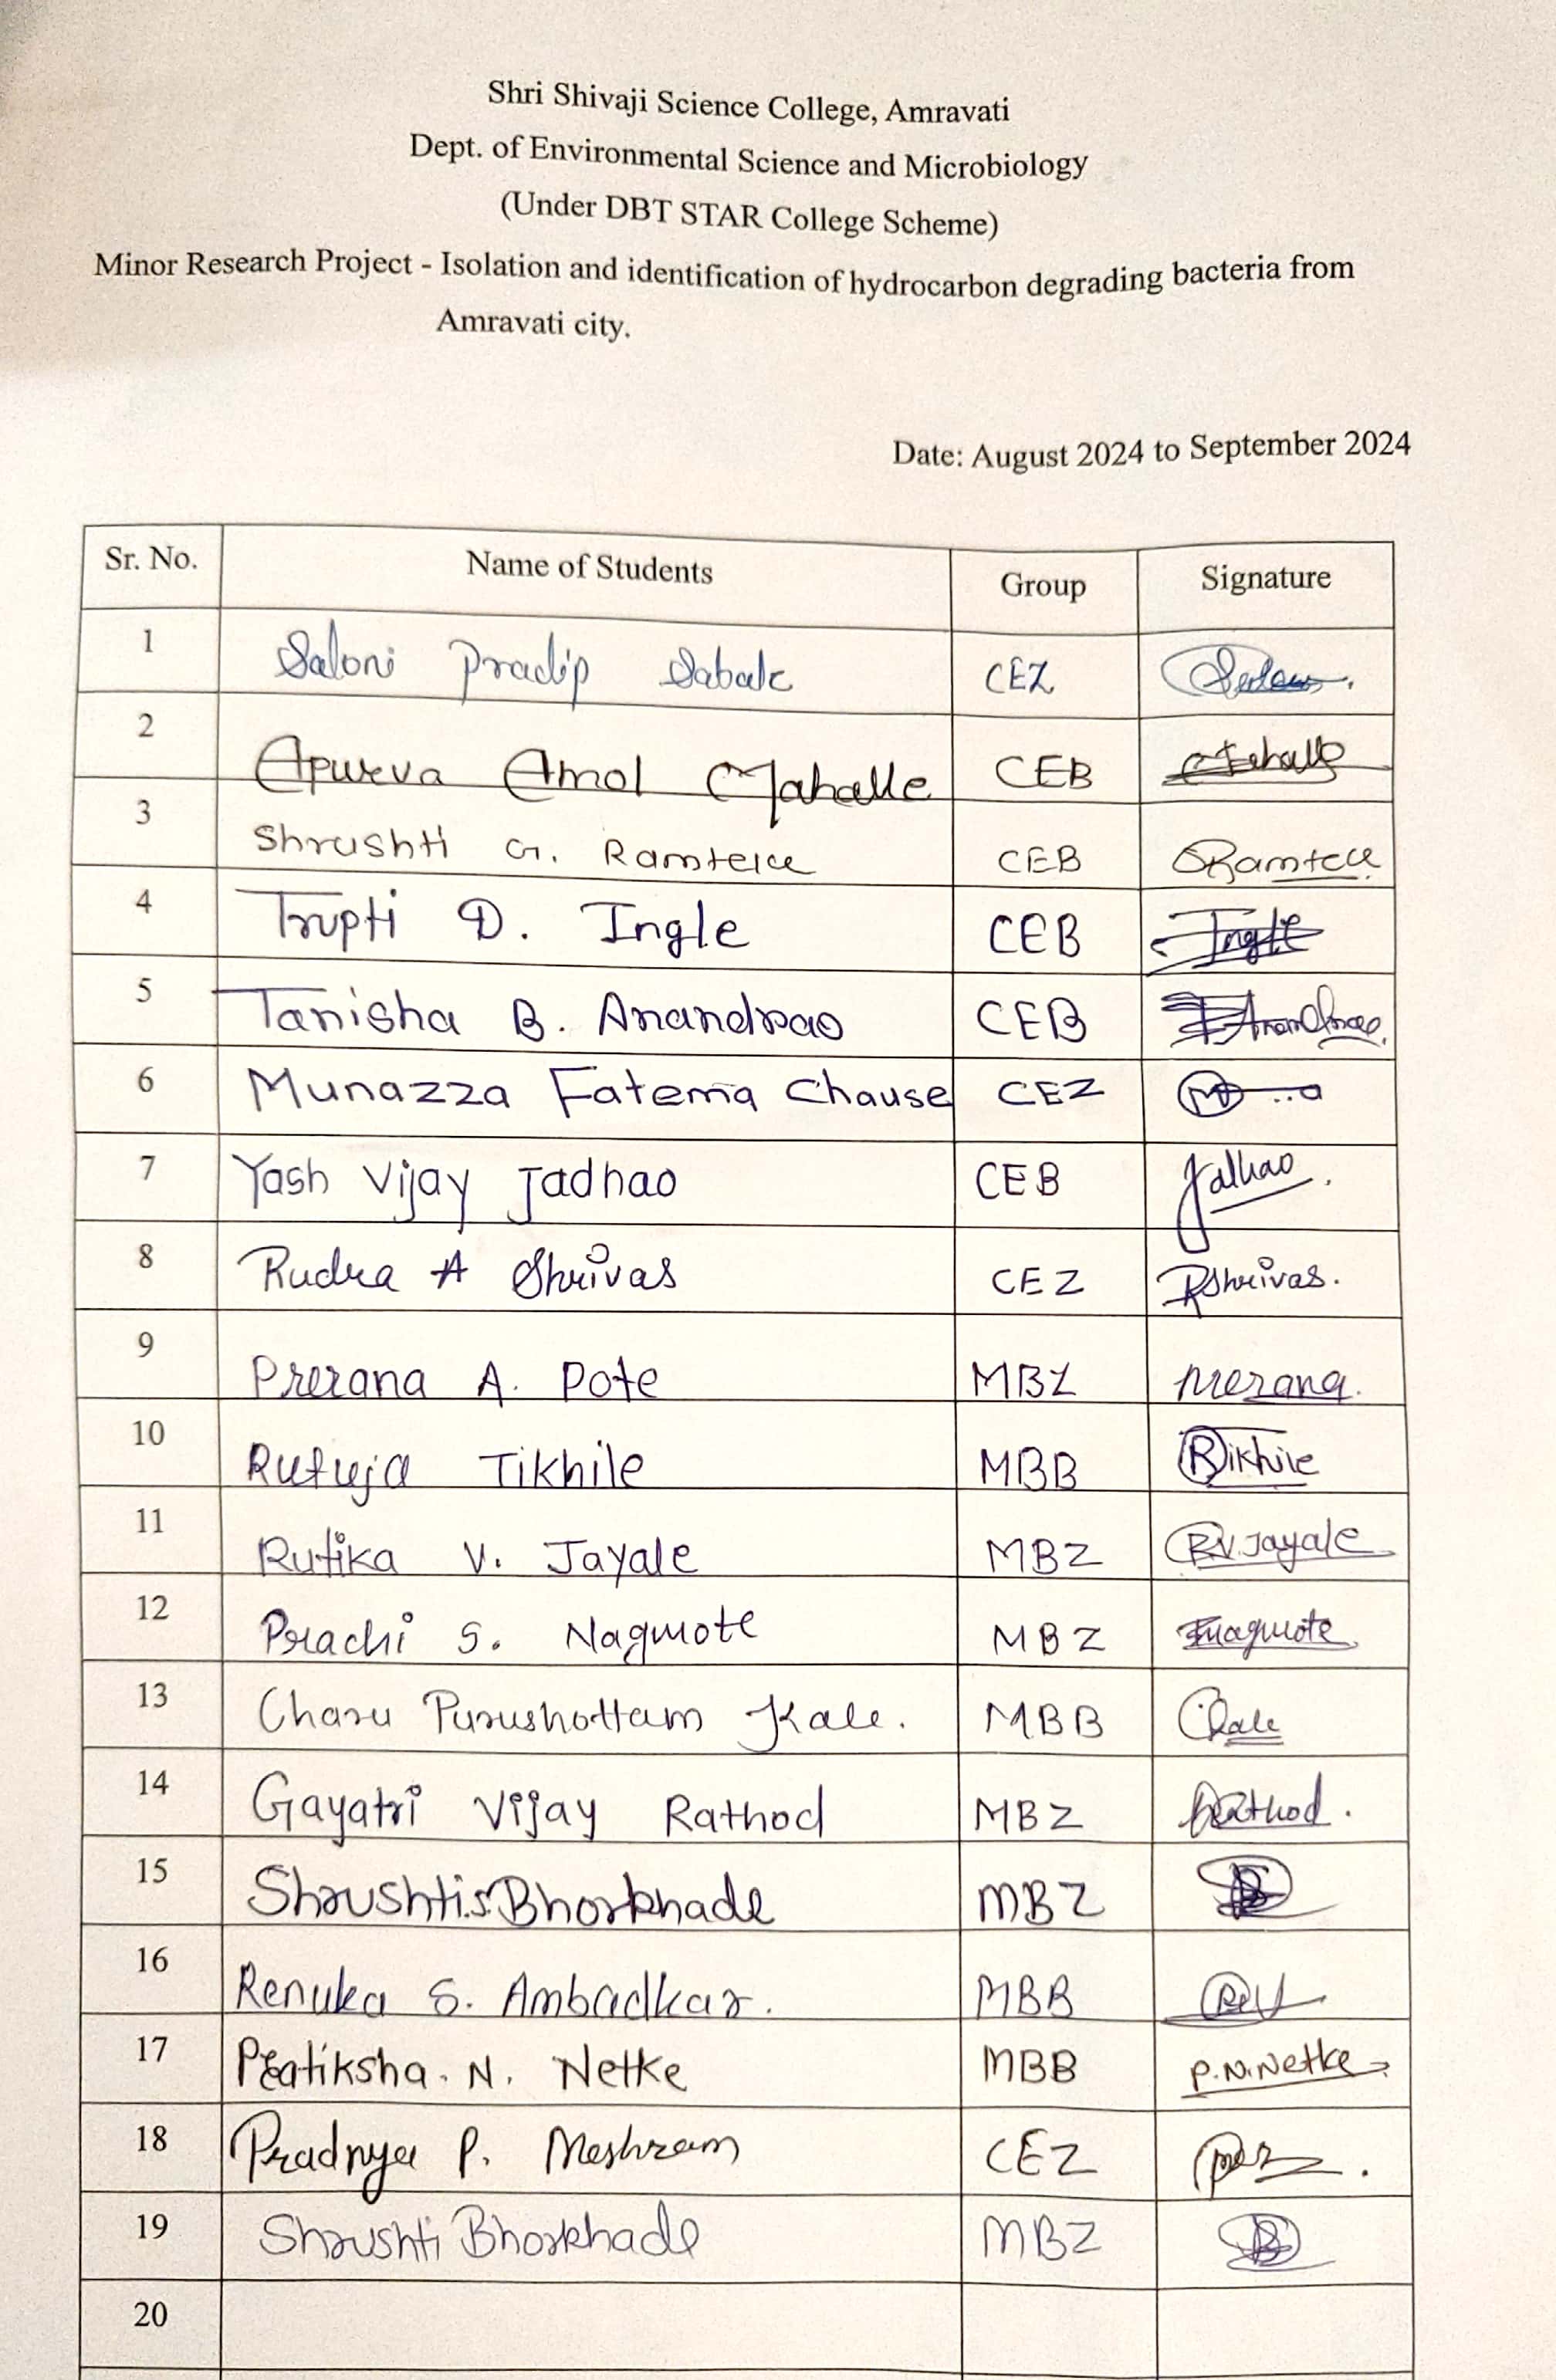 Shri Shivaji Science College, Amravati
Dept. of Environmental Science and Microbiology
(Under DBT STAR College Scheme)
Minor Research Project - Isolation and identification of hydrocarbon degrading bacteria from
Amravati city.
Date: August 2024 to September 2024
Sr. No. Name of Students Group Signature
1 Saloni Pradip Sabale CEZ
2 Apurva Amol Mahalle CEB
3 Shrushti G. Ramteke CEB Ramteke
4 Trupti D. Ingle CEB Ingle
5 Tanisha B. Anandrao CEB
6 Munazza Fatema Chause CEZ
7 Yash Vijay Jadhao CEB Jadhao
8 Rudra A Shrivas CEZ RShrivas.
9 Prerana A. Pote MBZ Prerana.
10 Rutuja Tikhile MBB Rikhile
11 Rutika V. Jayale MBZ R.V.Jayale
12 Prachi S. Nagmote MBZ
13 Charu Purushottam Kale. MBB
14 Gayatri Vijay Rathod MBZ
15 Shrushti.S.Bhorkhade MBZ
16 Renuka S. Ambadkar. MBB
17 Pratiksha. N. Netke MBB P.N.Netke
18 Pradnya P. Meshram CEZ
19 Shrushti Bhorkhade MBZ
20